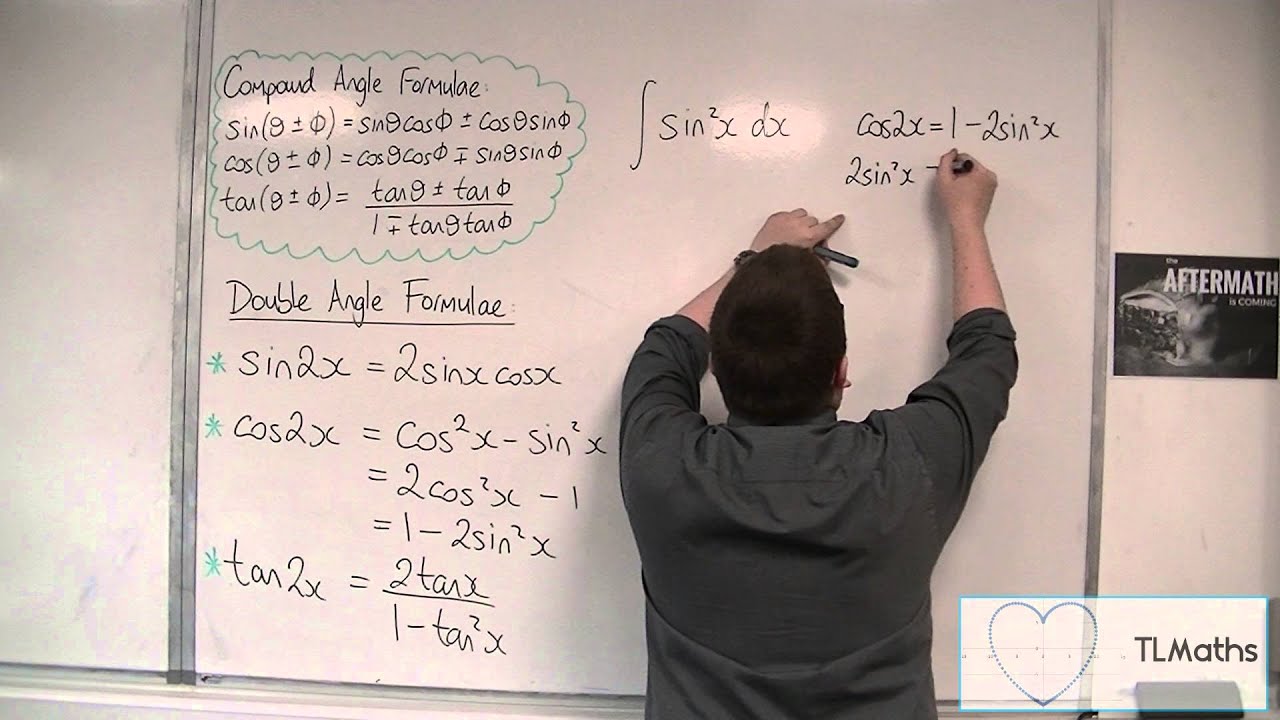 Compound Angle Formulae:
sin(θ ± Φ) = sinθcosΦ ± cosθsinΦ
cos(θ ± Φ) = cosθcosΦ ∓ sinθsinΦ
tan(θ ± Φ) = tanθ ± tanΦ
1 ∓ tanθtanΦ
Double Angle Formulae:
* sin2x = 2sinxcosx
* cos2x = cos²x - sin²x
= 2cos²x - 1
= 1 - 2sin²x
* tan2x = 2tanx
1 - tan²x
∫ sin²x dx
cos2x = 1 - 2sin²x
2sin²x
the
AFTERMATH
IS COMING
TLMaths